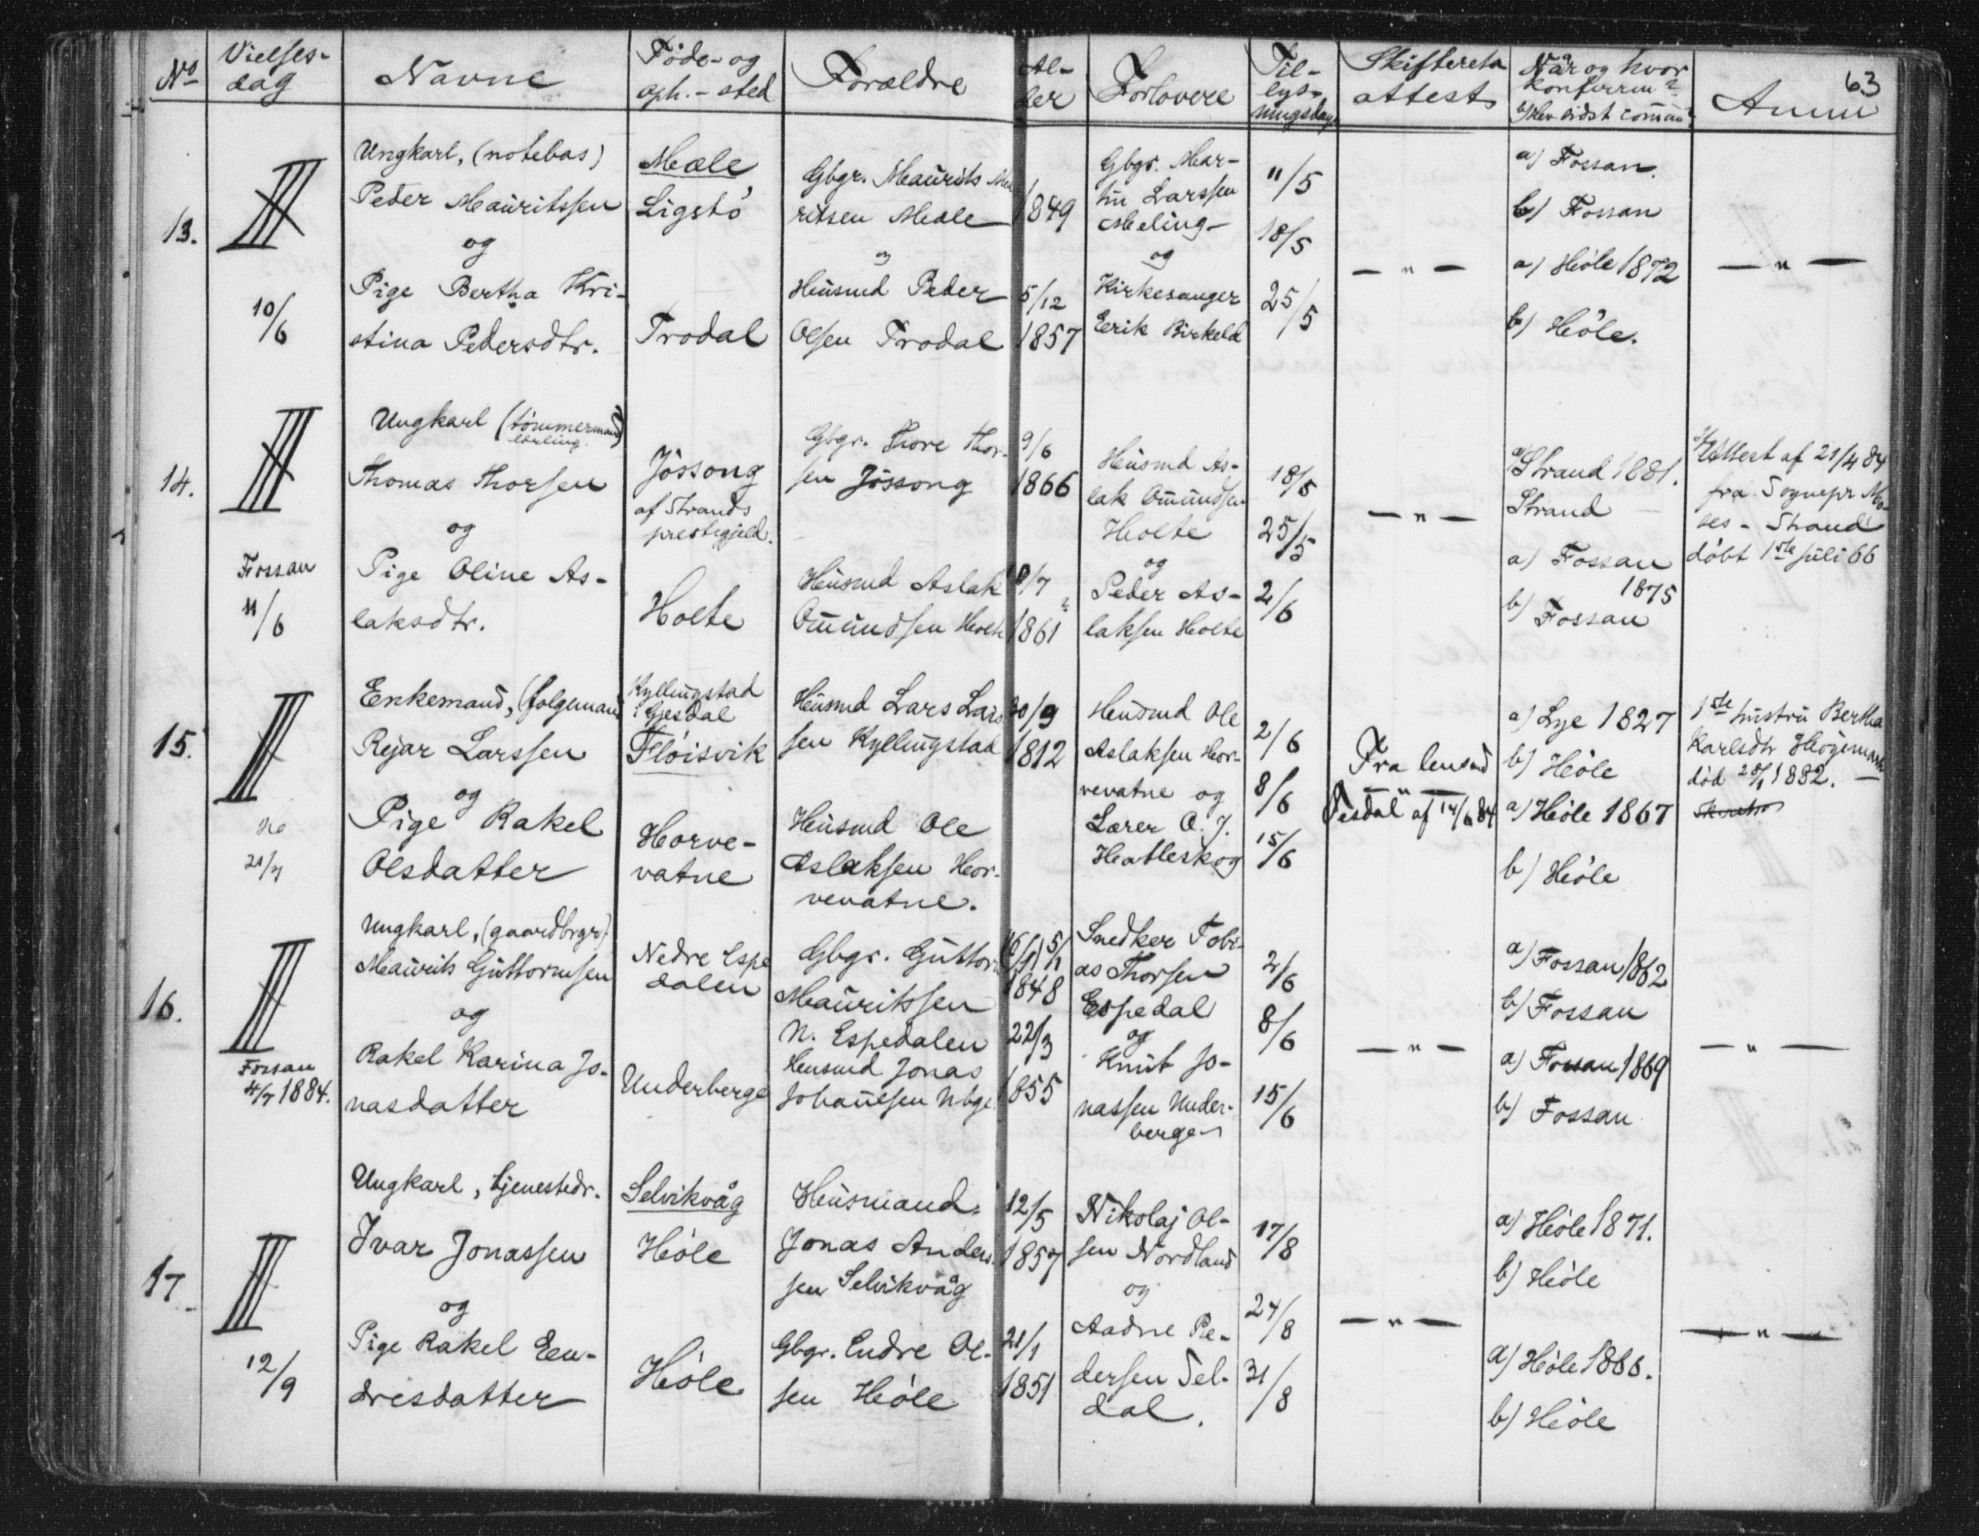 63
No
Vielses-
dag
Navne
Føde- og
oph.- sted
Forældre
Al-
der
Forlovere
Til-
lys-
ningsdag
Skifterets
attest
Når og hvor
Konfirm
b) blev sidst
Anm
13.
10/6
Ungkarl, (notebas)
Peder Mauritssen
og
Pige Bertha Kri-
stina Pedersdtr.
Mæle
Ligstø
Trodal
Gbgr. Maurits
ritsen Mæle
Husmd Peder
Olsen Trodal
1849
5/12
1857
Gbgr. Mar-
tin Larssen
Meling
og
Kirkesanger
Eerik Birkeld
11/5
18/5
25/5
— " —
a) Fossan.
b) Fossan
a) Høle 1872
b) Høle.
— " —
14.
Fossan
11/6
Ungkarl (tømmermand
lærling.)
Thomas Thorsen
og
Pige Oline As-
laksdtr.
Jøssong
af Strands
prestegjeld.
Holte
Gbgr. Thore Thor-
sen Jøssong
Husmd Aslak
Omundsen Holte
9/6
1866
8/7
1861
Husmd As-
lak Omundsen
Holte
og
Peder As-
laksen Holte
18/5
25/5
2/6
— " —
a) Strand 1881.
Strand
a) Fossan
1875
b) Fossan
Attest af 21/4 84
fra Sognepr
Strand
døbt 1ste juli 66
15.
21/7
Enkemand, (følgemand
Rejar Larssen
og
Pige Rakel
Olsdatter
Kyllingstad
i Gjesdal
Fløisvik
Horve-
vatne
Husmd Lars Lars
sen Kyllingstad
Husmd Ole
Aslaksen Hor-
vevatne.
30/9
1812
Husmd Ole
Aslaksen Hor-
vevatne og
Lærer O. J.
Hatleskog
2/6
8/6
15/6
Fra lensmd
— " —
af 14/6 84
a) Lye 1827
b) Høle
a) Høle 1867
b) Høle
1ste hustru Bertha
Karlsdtr
død 1882.
16.
Fossan
4/7 1884.
Ungkarl, (gaardbrgr)
Maurits Guttormsen
og
Rakel Karina Jo-
nasdatter
Nedre Espe
dalen
Underberge
Gbgr. Guttorm
Mauritssen
N. Espedalen
Husmd Jonas
Johannesen Ubge
1848
22/3
1855
Snedker Tobi-
as Thorsen
Espedal
og
Knut Jo-
nassen Under-
berge
2/6
8/6
15/6
— " —
a) Fossan 1862
b) Fossan
a) Fossan 1869
b) Fossan
— " —
17
12/9
Ungkarl, tjenestedr.
Ivar Jonassen
og
Pige Rakel Een-
dresdatter
Selvikvåg
Høle
Høle
Husmand
Jonas Anders-
sen Selvikvåg
Gbgr. Endre Ol-
sen Høle
12/5
1857
21/1
1851
Nikolaj Ol-
sen Nordland
og
Aadne Pe-
dersen Sel-
dal.
17/8
24/8
31/8
— " —
a) Høle 1871.
b) Høle
a) Høle 1866.
b) Høle
— " —